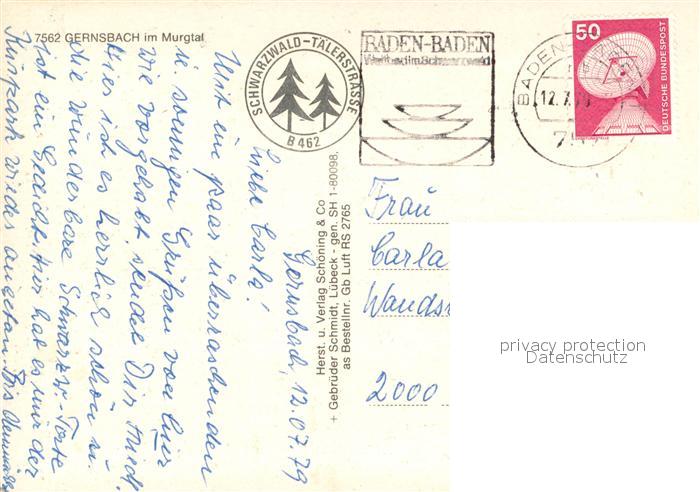 7562 GERNSBACH im Murgtal
SCHWARZWALD-TÄLERSTRASSE
B 462
BADEN-BADEN
Weltbad im Schwarzwald
BADEN-
12.7.79
50
DEUTSCHE BUNDESPOST
Gernsbad, 12.07.79
Liebe Carla!
Mit ein paar überraschenden
u. sonnigen Grüßen von hier
wie vorgehabt sendet Dir
hier ist es herrlich schön u.
die wunderbare Schwarzw.-Torte
ist ein Gedicht, hier hat es mir der
Kurpark wieder angetan. Bis
Herst. u. Verlag Schöning & Co
+ Gebrüder Schmidt, Lübeck - gen. SH 1-80098,
as Bestellnr. Gb Luft RS 2765
Frau
Carla
Wands
2000
privacy protection
Datenschutz